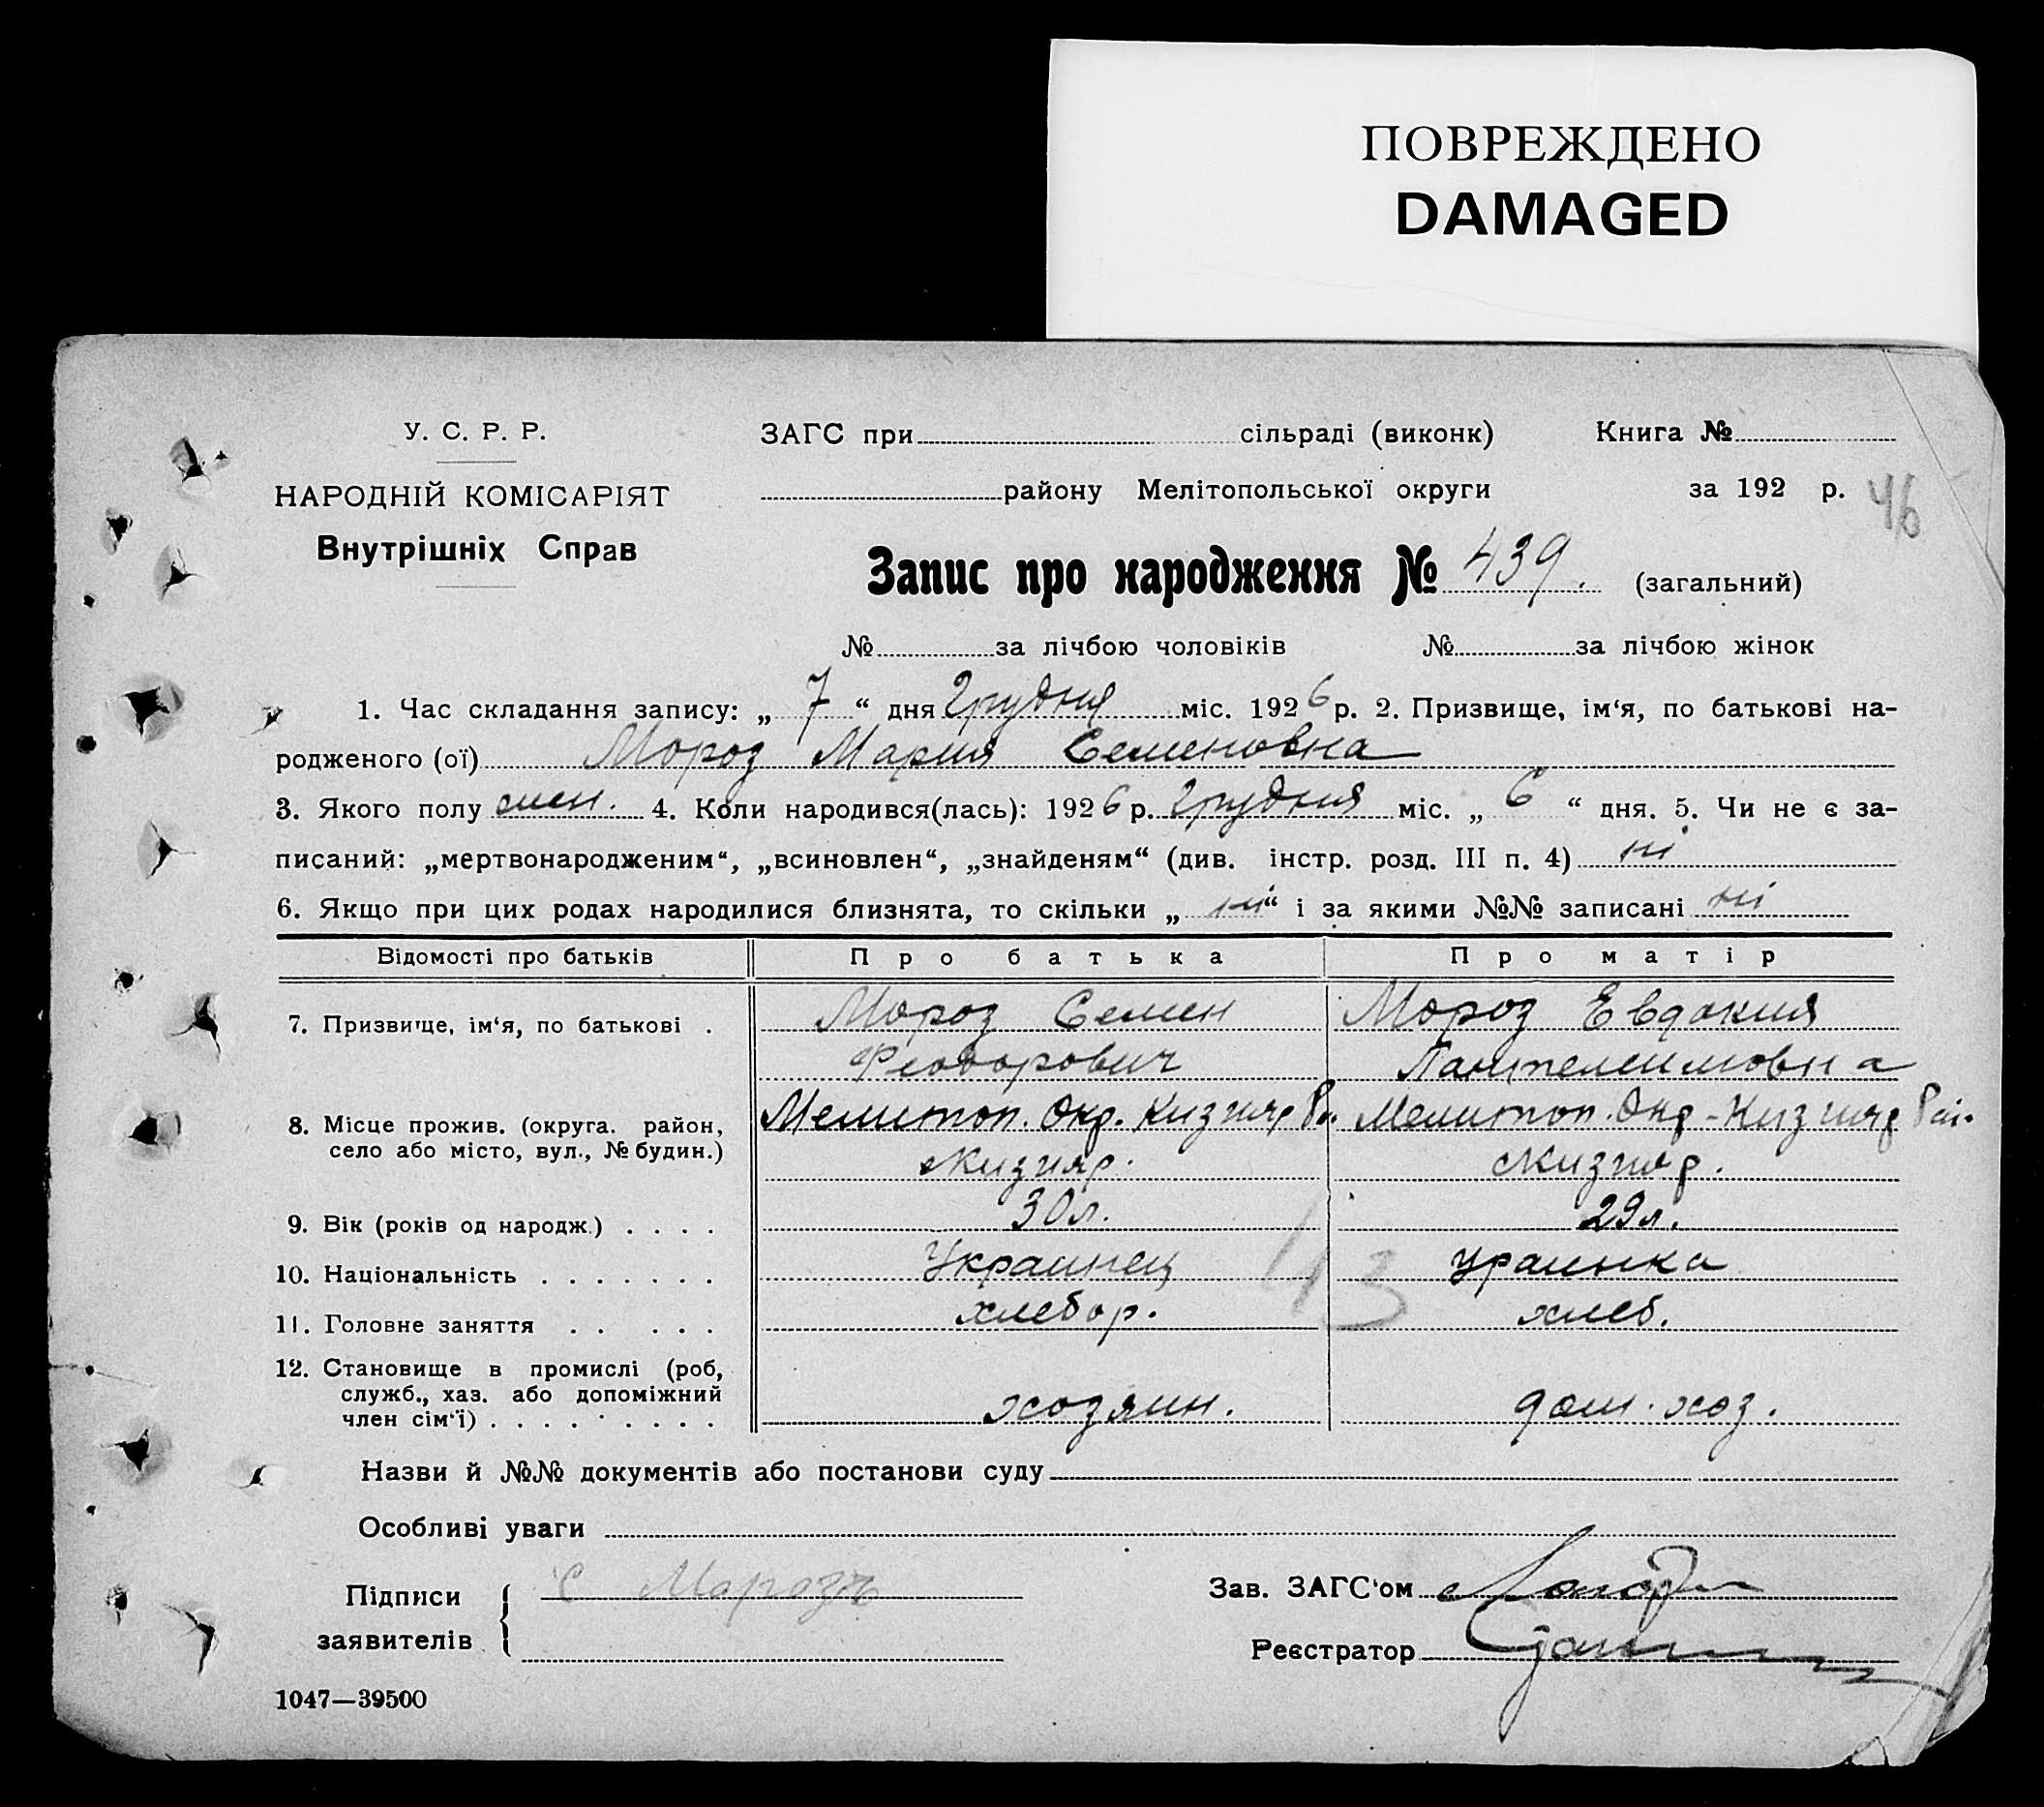 ПОВРЕЖДЕНО
DAMAGED
У. С. Р. Р.
НАРОДНІЙ КОМІСАРІЯТ
Внутрішніх Справ
ЗАГС при сільраді (виконк) Книга №
району Мелітопольської округи за 192 р. 46
Запис про народження № 439. (загальний)
№ за лічбою чоловіків № за лічбою жінок
1. Час складання запису: „ 7 “ дня Грудня міс. 1926 р. 2. Призвище, ім‘я, по батькові на-
родженого (ої) Мороз Мария Семеновна
3. Якого полу жен. 4. Коли народився(лась): 1926 р. Грудня міс. „ 6 “ дня. 5. Чи не є за-
писаний: „мертвонародженим“, „всиновлен“, „знайденям“ (див. інстр. розд. III п. 4) ні
6. Якщо при цих родах народилися близнята, то скільки „ ні “ і за якими №№ записані ні
Відомості про батьків Про батька Про матір
7. Призвище, ім‘я, по батькові . Мороз Семен Мороз Евдокия
Феодорович Пантелеимовна
8. Місце прожив. (округа. район, Мелитоп. Окр. Кизияр Ра. Мелитоп. Окр-Кизияр Рай.
село або місто, вул., № будин.) сКизияр. сКизияр.
9. Вік (років од народж.) . . . . 30л. 29л.
10. Національність . . . . . . . Украинец Ураинка
113
11. Головне заняття . . . . . хлебор. хлеб.
12. Становище в промислі (роб,
служб., хаз. або допоміжний хозяин. дом. хоз.
член сім‘ї) . . . . . . . . .
Назви й №№ документів або постанови суду
Особливі уваги
Підписи С Марозъ Зав. ЗАГС‘ом
заявителів Реєстратор
1047—39500